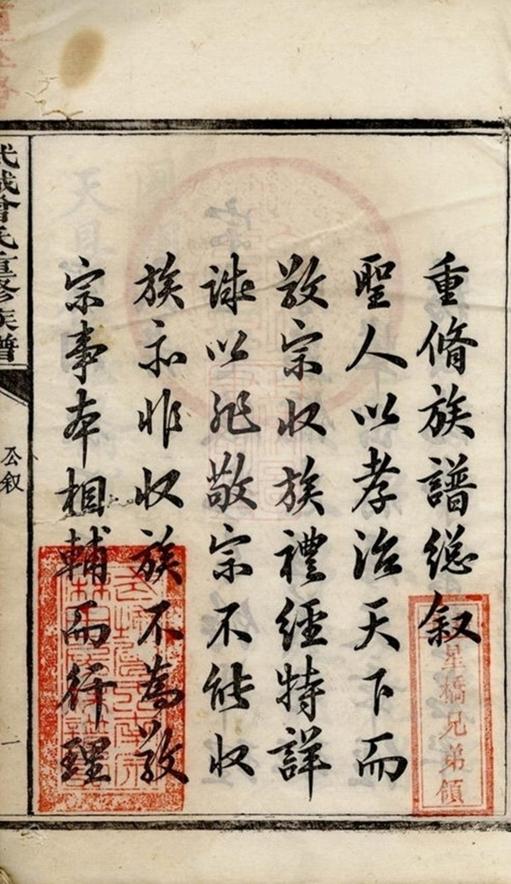 重脩族譜緫叙
聖人以孝治天下而
敬宗收族禮經特詳
誠以非敬宗不能收
族亦非收族不為敬
宗事本相輔而行理
武城曾氏重修族譜
公叙
一
星橋兄弟領